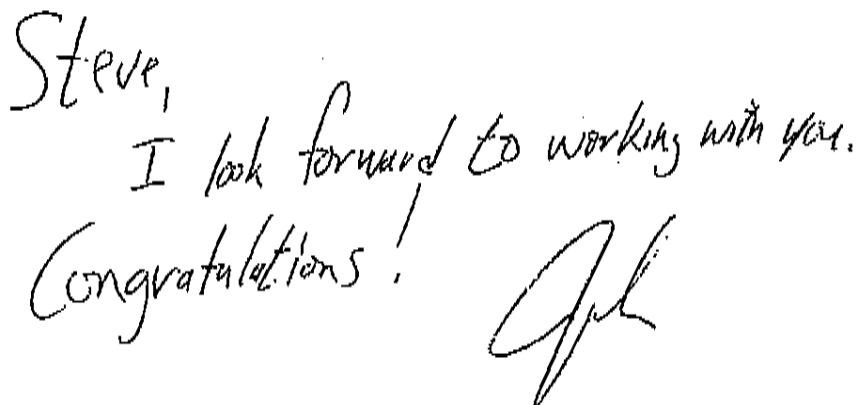 Steve,
I look forward to working with you.
Congratulations!